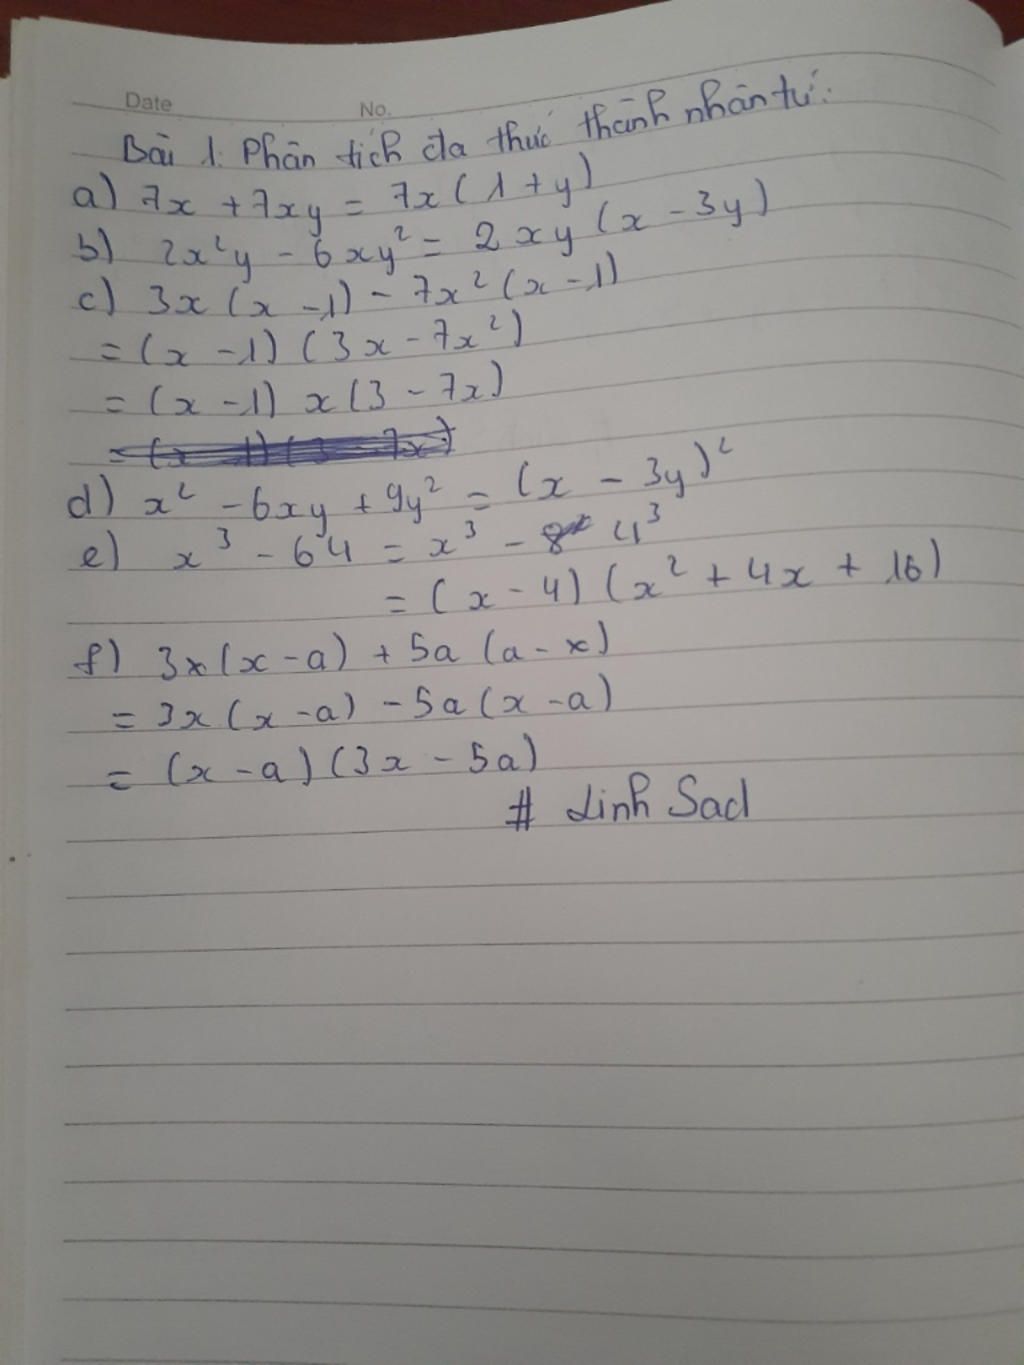 Date No.
Bài 1: Phân tích đa thức thành nhân tử:
a) 7x + 7xy = 7x(1+y)
b) 2x²y - 6xy² = 2xy(x - 3y)
c) 3x(x - 1) - 7x²(x - 1)
= (x - 1)(3x - 7x²)
= (x - 1) x(3 - 7x)
= (x - 1)(3 - 7x)
d) x² - 6xy + 9y² = (x - 3y)²
e) x³ - 64 = x³ - 4³
= (x - 4)(x² + 4x + 16)
f) 3x(x - a) + 5a(a - x)
= 3x(x - a) - 5a(x - a)
= (x - a)(3x - 5a)
# Linh Sad